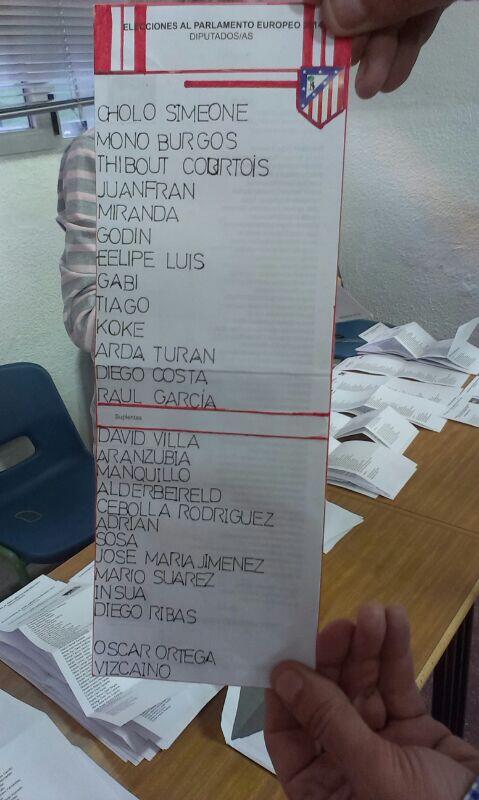 ELECCIONES AL PARLAMENTO EUROPEO 2014
DIPUTADOS/AS
CHOLO SIMEONE
MONO BURGOS
THIBOUT COURTOIS
JUANFRAN
MIRANDA
GODIN
EELIPE LUIS
GABI
TIAGO
KOKE
ARDA TURAN
DIEGO COSTA
RAUL GARCÍA
Suplentes
DAVID VILLA
ARANZUBIA
MANQUILLO
ALDERBEIRELD
CEBOLLA RODRIGUEZ
ADRIAN
SOSA
JOSE MARIA JIMENEZ
MARIO SUAREZ
INSUA
DIEGO RIBAS
OSCAR ORTEGA
VIZCAINO